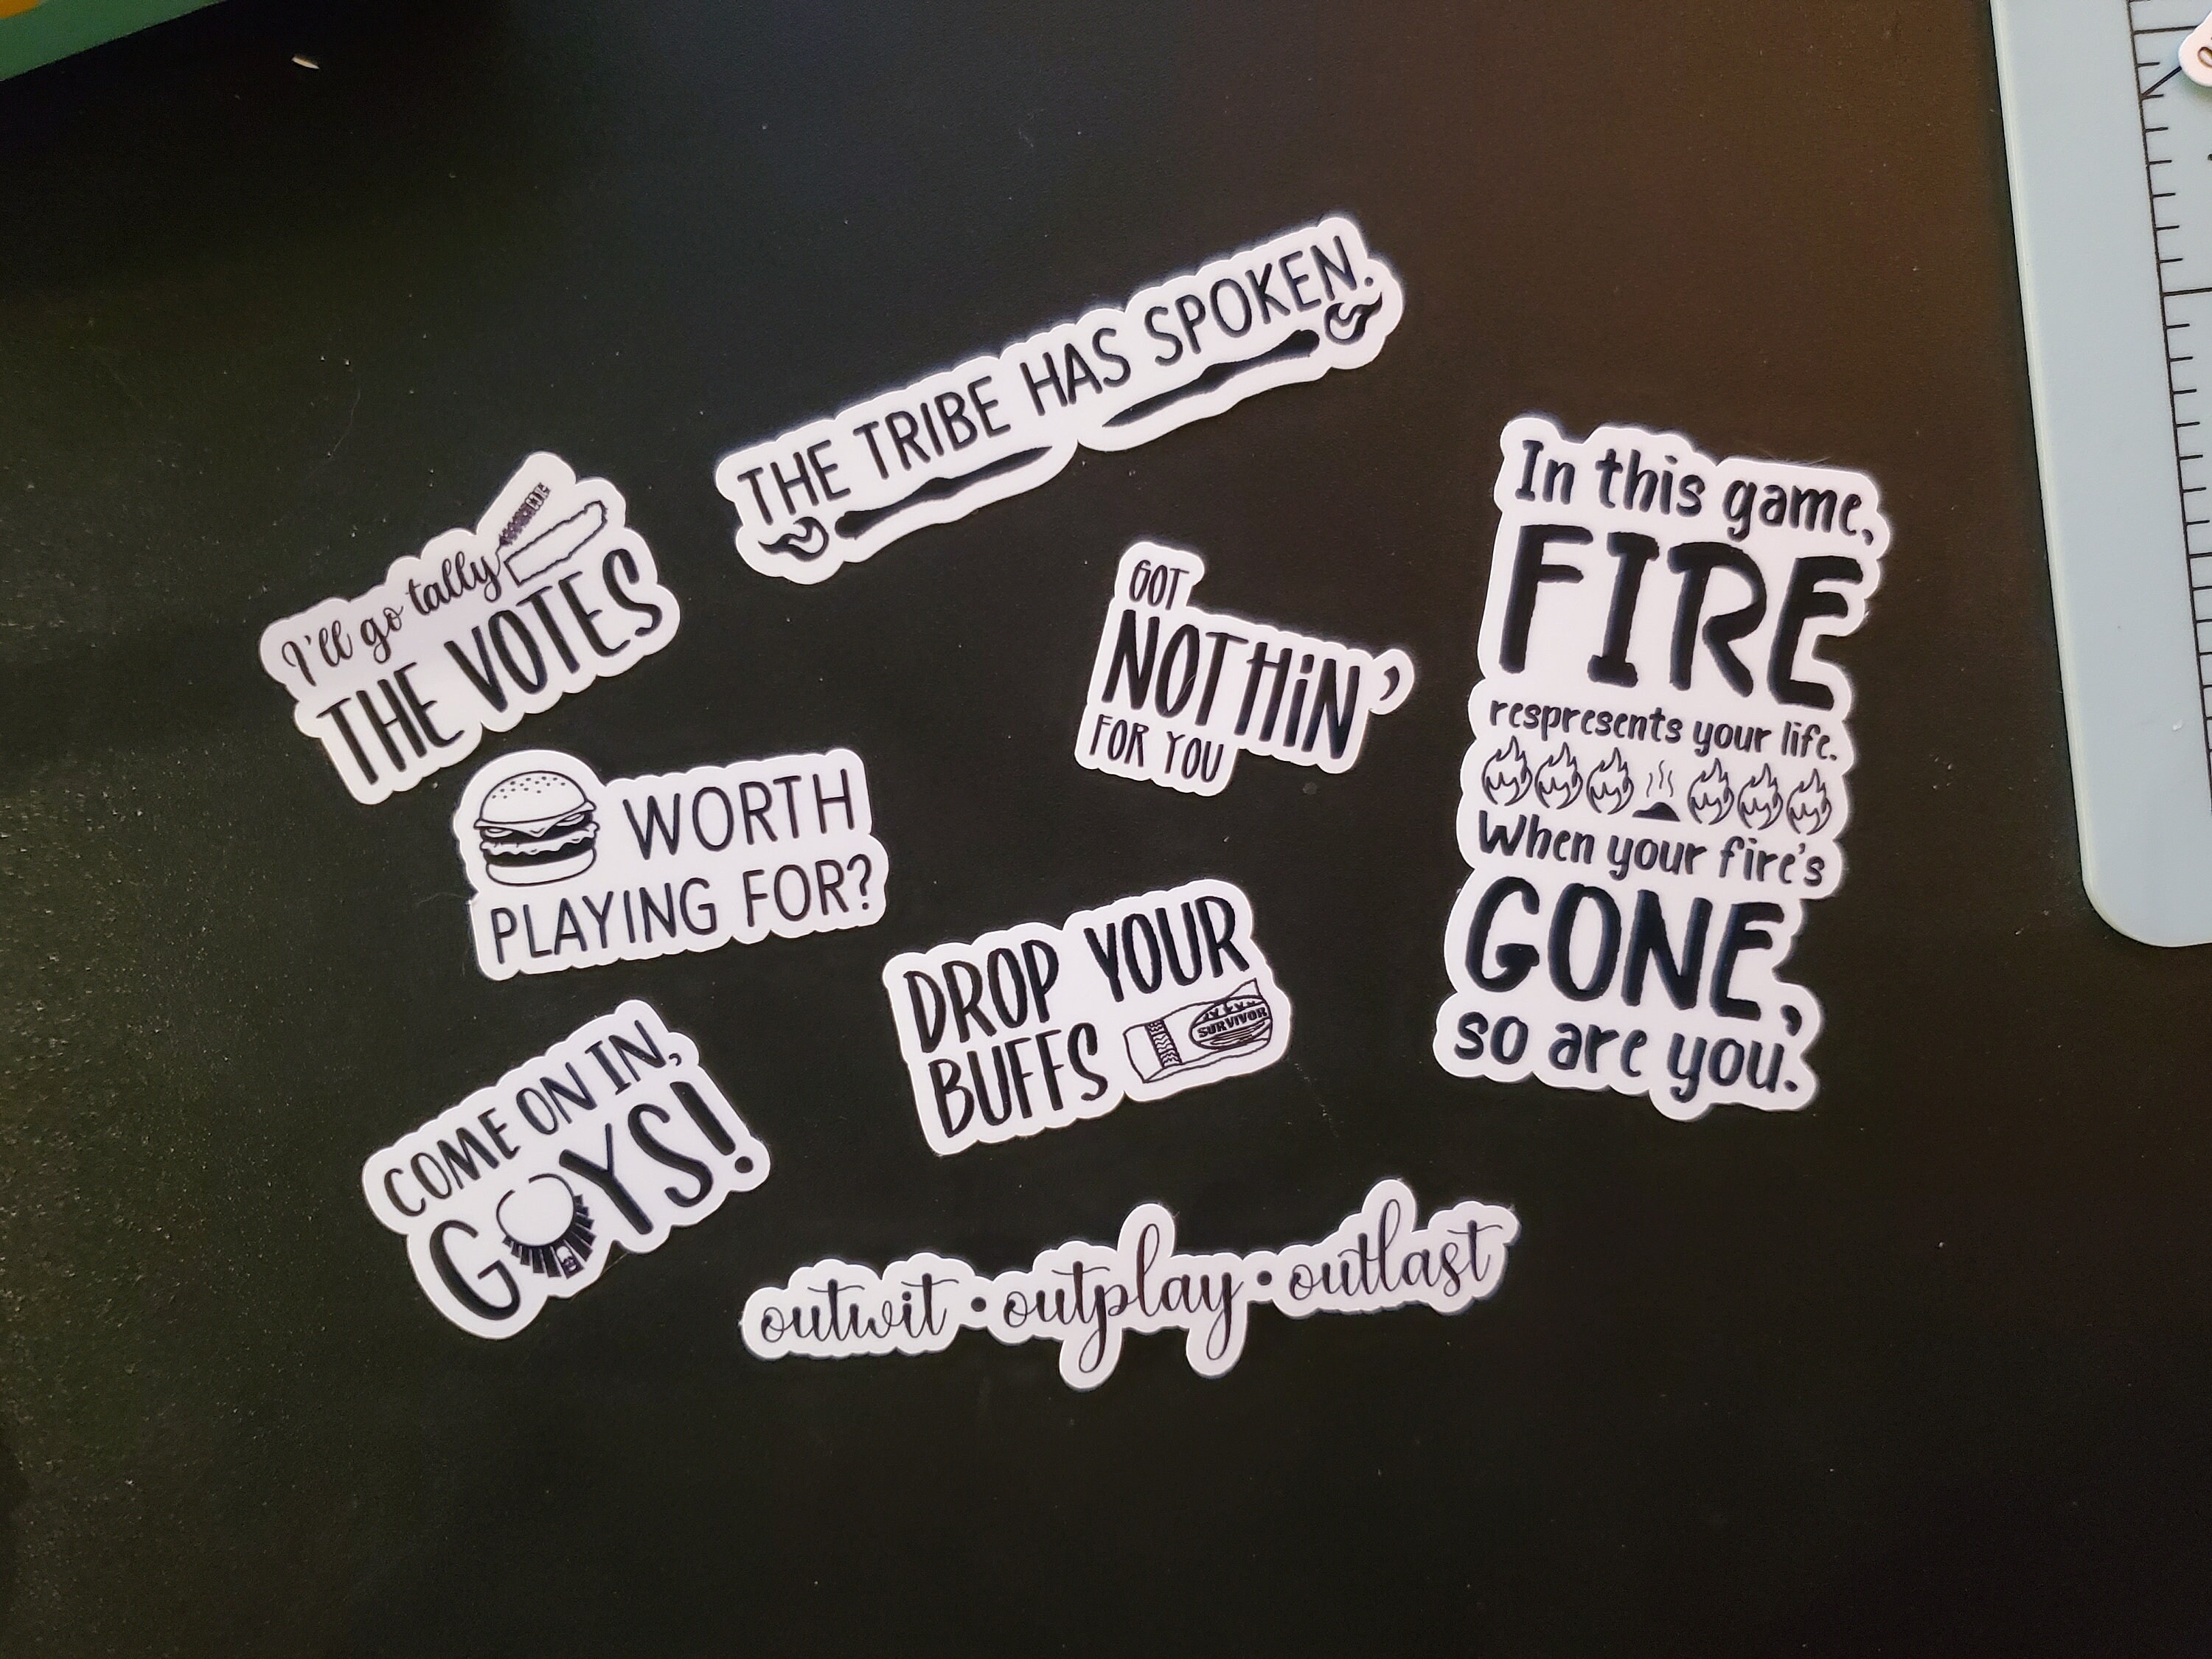 THE TRIBE HAS SPOKEN.
I'll go tally
THE VOTES
GOT
NOTHIN'
FOR YOU
In this game,
FIRE
respresents your life.
When your fire's
GONE,
so are you.
WORTH
PLAYING FOR?
DROP YOUR
BUFFS
SURVIVOR
COME ON IN,
GUYS!
outwit • outplay • outlast